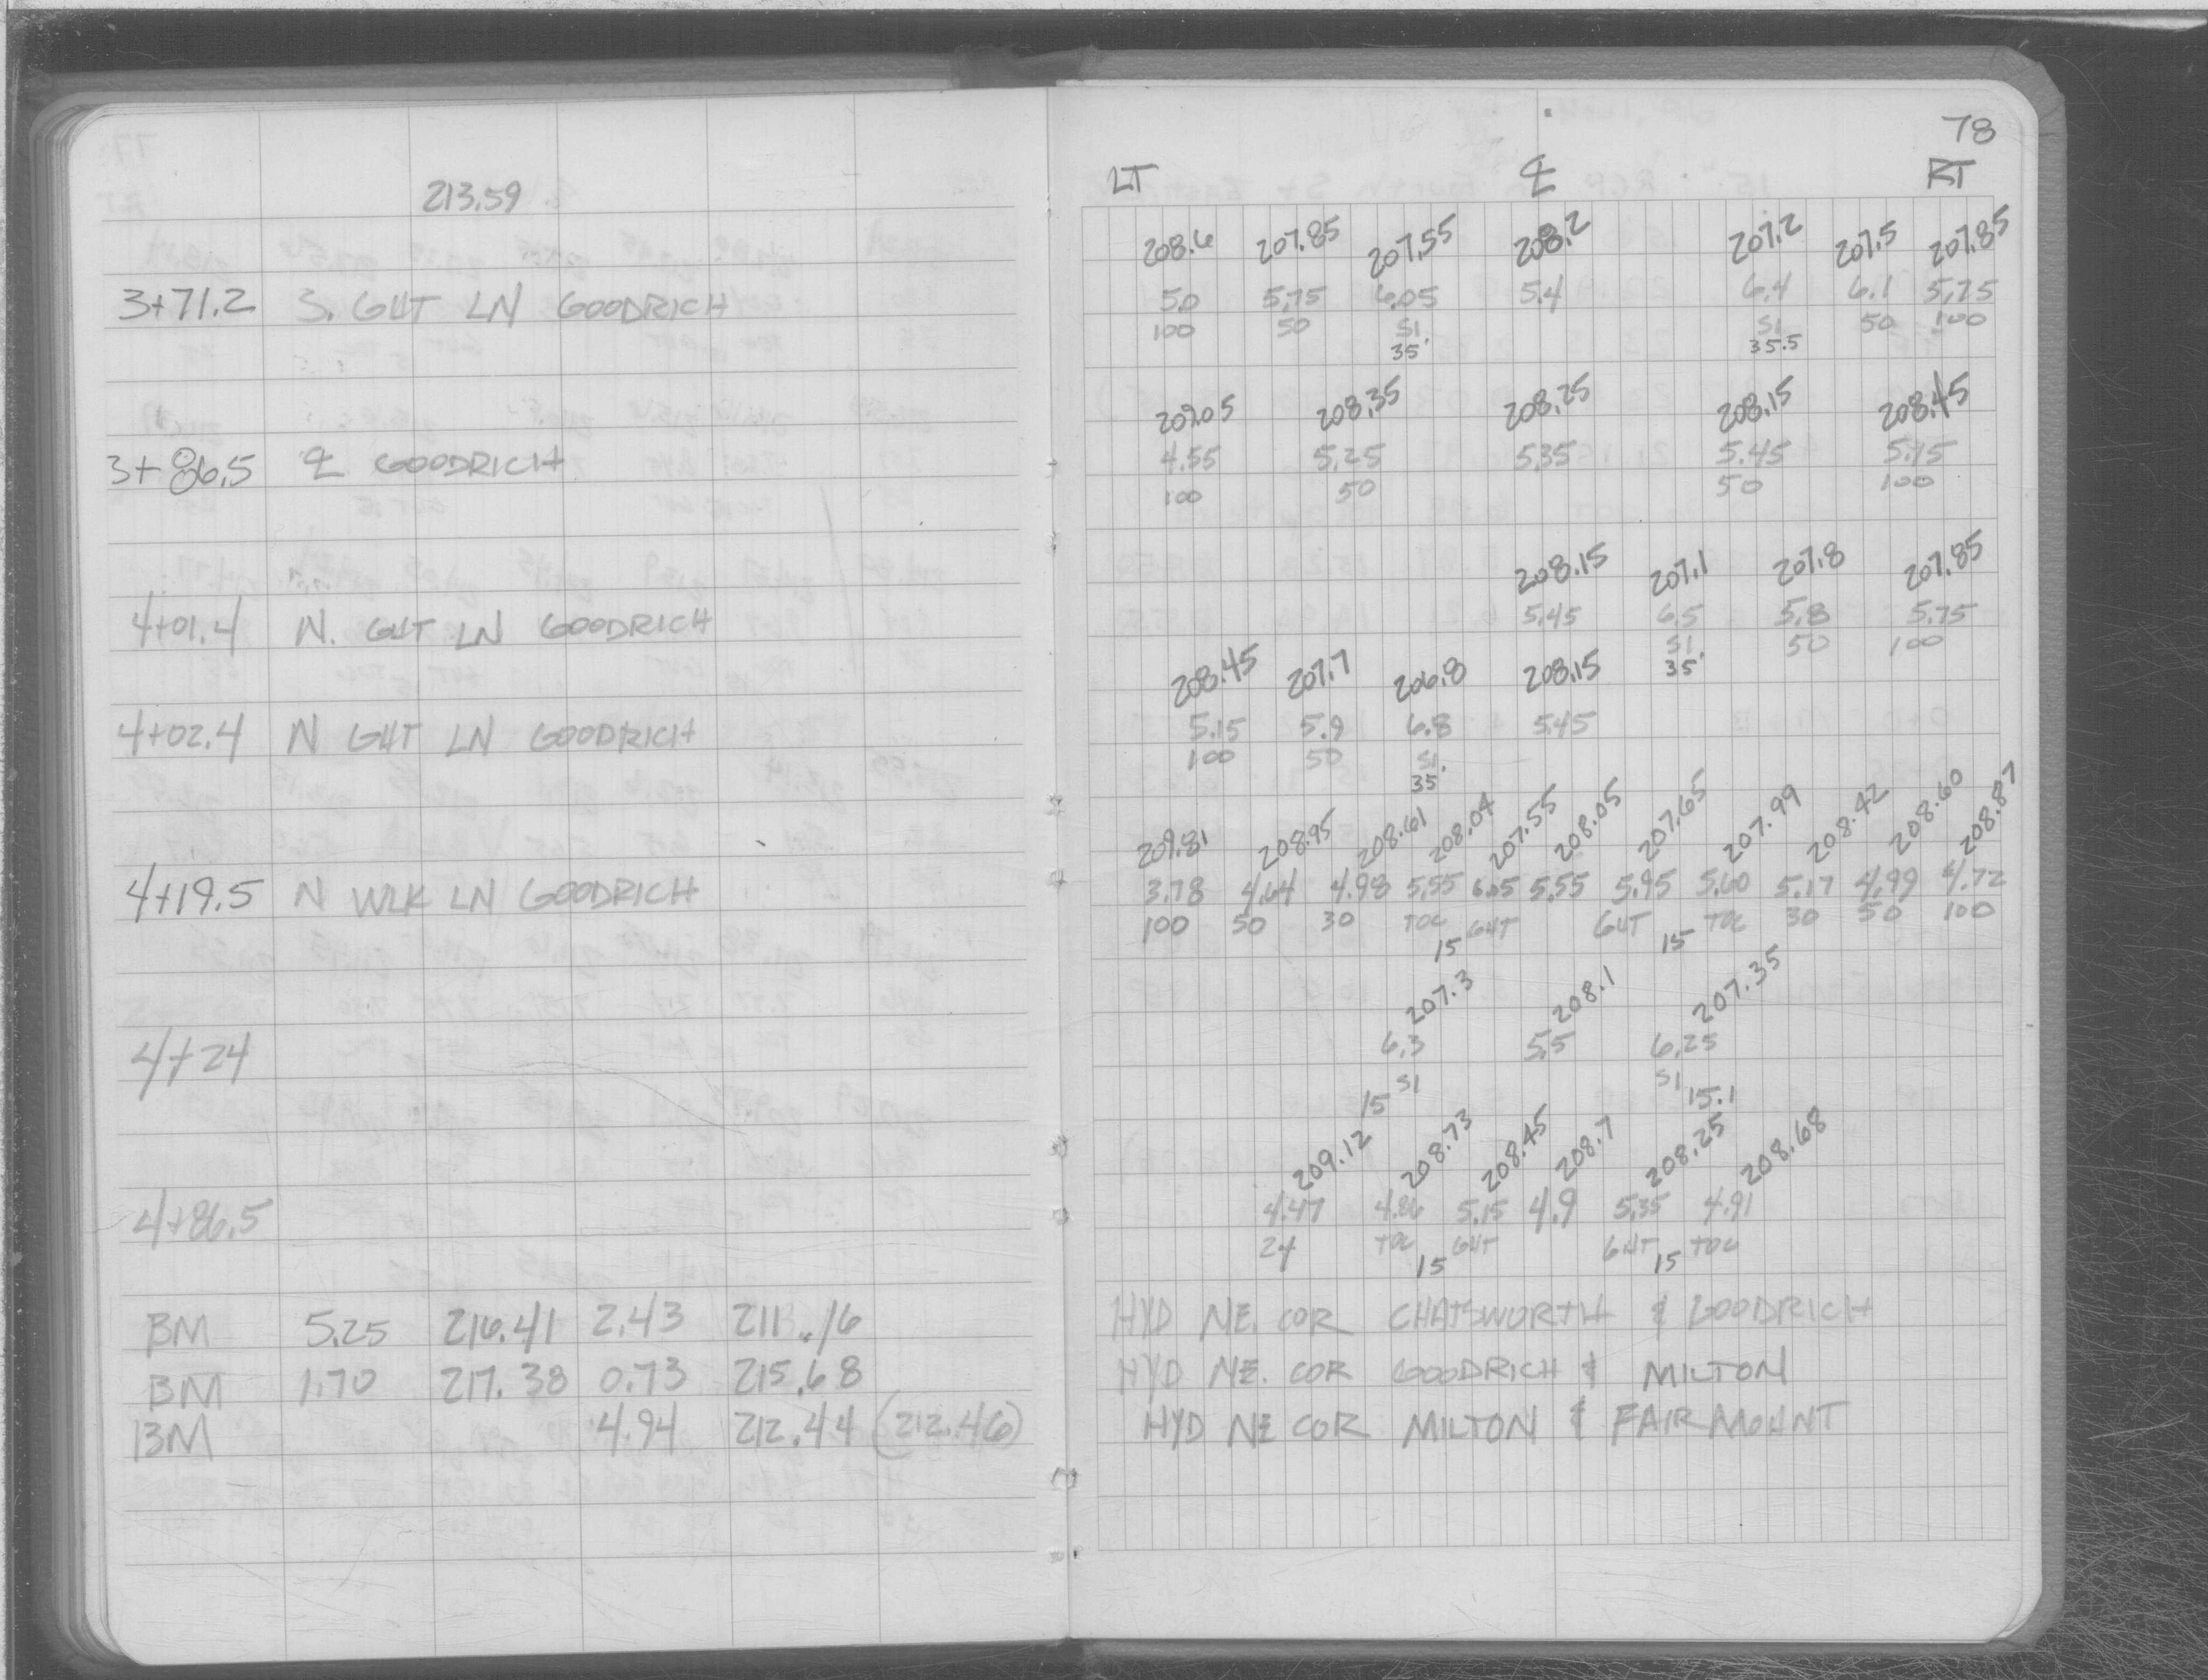 78
LT ℄ RT
213.59
208.6 207.85 207.55 208.2 207.2 207.5 207.85
3+71.2 S. GUT LN GOODRICH 5.0 5.75 6.05 5.4 6.4 6.1 5.75
100 50 SI. SI 50 100
35 35.5
209.05 208.35 208.25 208.15 208.45
3+86.5 ℄ GOODRICH 4.55 5.25 5.35 5.45 5.15
100 50 50 100
208.15 207.1 207.8 207.85
4+01.4 N. GUT LN GOODRICH 5.45 6.5 5.8 5.75
SI. 50 100
35
208.45 207.7 206.8 208.15
4+02.4 N GUT LN GOODRICH 5.15 5.9 6.8 5.45
100 50 SI.
35
209.81 208.95 208.61 208.04 207.55 208.05 207.65 207.99 208.42 208.60 208.87
4+19.5 N WLK LN GOODRICH 3.78 4.64 4.98 5.55 6.05 5.55 5.95 5.60 5.17 4.99 4.72
100 50 30 TOC GUT GUT TOC 30 50 100
15 15
207.3 208.1 207.35
4+24 6.3 5.5 6.25
SI SI
15 15.1
209.12 208.73 208.45 208.7 208.25 208.68
4+86.5 4.47 4.86 5.15 4.9 5.35 4.91
24 TOC GUT GUT TOC
15 15
BM 5.25 216.41 2.43 211.16 HYD NE. COR CHATSWORTH & GOODRICH
BM 1.70 217.38 0.73 215.68 HYD NE. COR GOODRICH & MILTON
BM 4.94 212.44 (212.46) HYD NE COR MILTON & FAIRMOUNT